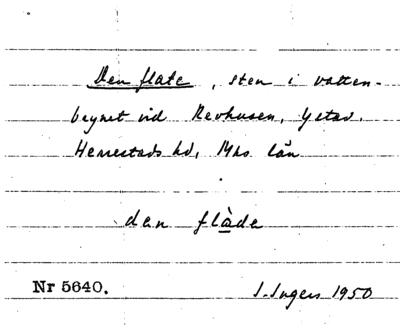 Den flate, sten i vatten-
brynet vid Revhusen, Ystad.
Herrestads hd, Mhs län
den flàde
Nr 5640. I. Ingers 1950